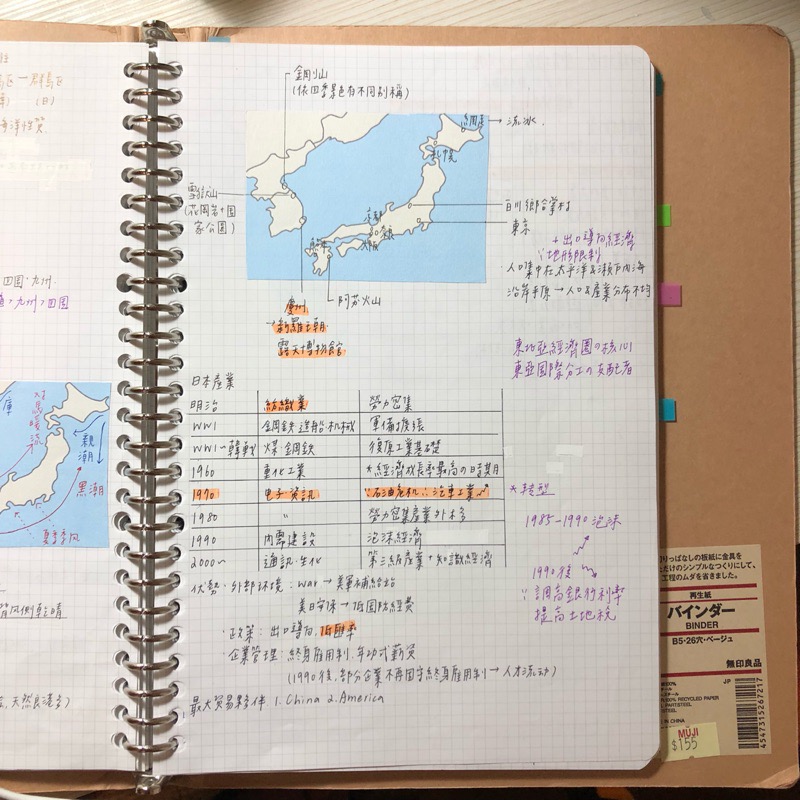 金剛山
(依四季景色有不同別稱)
網走 → 流冰
札幌
雪嶽山
(花崗岩+國
家公園)
白川鄉合掌村
京都
東京
大阪
熊本
阿苏火山
慶州
→新羅王朝
露天博物館
+出口導向經濟
∵地形限制
·人口集中在太平洋&瀨戶內海
沿岸平原→人口&產業分布不均
東北亞經濟圈の核心
東亞国際分工の支配者
日本産業
明治 紡織業 勞力密集
WW1 鋼鐵·造船·机械 軍備擴張
WW1~韓戰 煤·鋼鉄 復原工業基礎
1960 重化工業 *經濟成長率最高の時期
1970 电子資訊 ∵石油危机∴汽車工業
1980 〃 勞力密集產業外移
1990 內需建設 泡沫經濟
2000~ 通訊·生化 第三級產業+知識經濟
*轉型
1985-1990 泡沫
1990後
∵調高銀行利率
提高土地稅
优勢·外部环境:war→美軍補給站
美日安保→低国防經費
·政策:出口導向,低匯率
·企業管理:終身雇用制,年功式薪資
(1990後,部分企業不再固守終身雇用制→人才流动)
最大貿易夥伴 1.China 2.America
群島
(日)
海洋性質
四国·九州
九州>四国
对馬暖流
親潮
黑潮
夏季风
背风側乾晴
天然良港多)
りっぱなしの板紙に金具を
だけのシンプルなつくりにして、
工程のムダを省きました。
再生紙
バインダー
BINDER
B5·26穴·ベージュ
無印良品
JP
RECYCLED PAPER
PART:STEEL
STEEL
IN CHINA
MUJI
$155
4547315267217